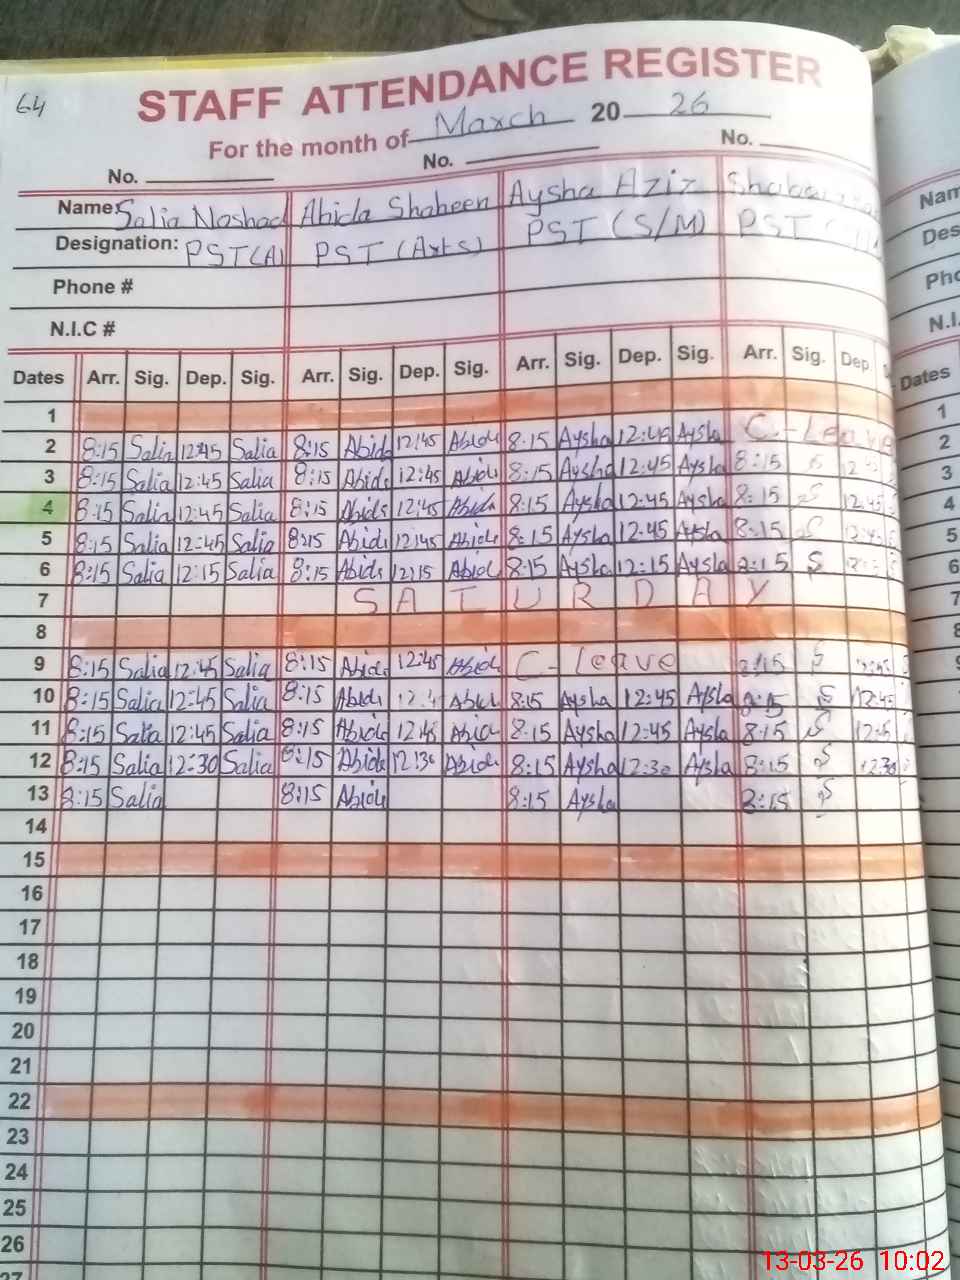 64
STAFF ATTENDANCE REGISTER
For the month of March 20 26
No. No. No.
Name: Salia Noshad Abida Shaheen Aysha Aziz Nam
Designation: PST(A) PST (Arts) PST (S/M) PST Des
Phone # Pho
N.I.C # N.I.
Dates Arr. Sig. Dep. Sig. Arr. Sig. Dep. Sig. Arr. Sig. Dep. Sig. Arr. Sig. Dep. Dates
1 1
2 8:15 Salia 12:45 Salia 8:15 Abid 12:45 Abide 8:15 Aysha 12:45 Aysha C-Leave 2
3 8:15 Salia 12:45 Salia 8:15 Abide 12:45 Abide 8:15 Aysha 12:45 Aysha 8:15 S 12 3
4 8:15 Salia 12:45 Salia 8:15 Abide 12:45 Abida 8:15 Aysha 12:45 Aysha 8:15 S 12:45 4
5 8:15 Salia 12:45 Salia 8:15 Abide 12:45 Abide 8:15 Aysha 12:45 Aysha 8:15 S 5
6 8:15 Salia 12:15 Salia 8:15 Abide 12:15 Abid 8:15 Aysha 12:15 Aysha 8:15 S 6
7 SATURDAY 7
8 8
9 8:15 Salia 12:45 Salia 8:15 Abide 12:45 Abide C-Leave 8:15 S 12:45 9
10 8:15 Salia 12:45 Salia 8:15 Abide 12:4 Abide 8:15 Aysha 12:45 Aysha 8:15 S 12:45 10
11 8:15 Salia 12:45 Salia 8:15 Abide 12:45 Abid 8:15 Aysha 12:45 Aysha 8:15 S 11
12 8:15 Salia 12:30 Salia 8:15 Abide 12:30 Abide 8:15 Aysha 12:30 Aysha 8:15 S 12:30 12
13 8:15 Salia 8:15 Abide 8:15 Aysha 8:15 S
14
15
16
17
18
19
20
21
22
23
24
25
26
27
13-03-26 10:02